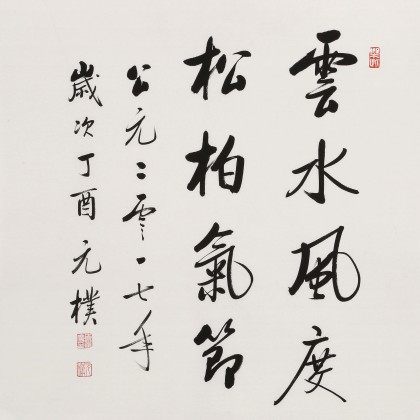 雲水風度
松柏氣節
公元二零一七年
歲次丁酉元樸